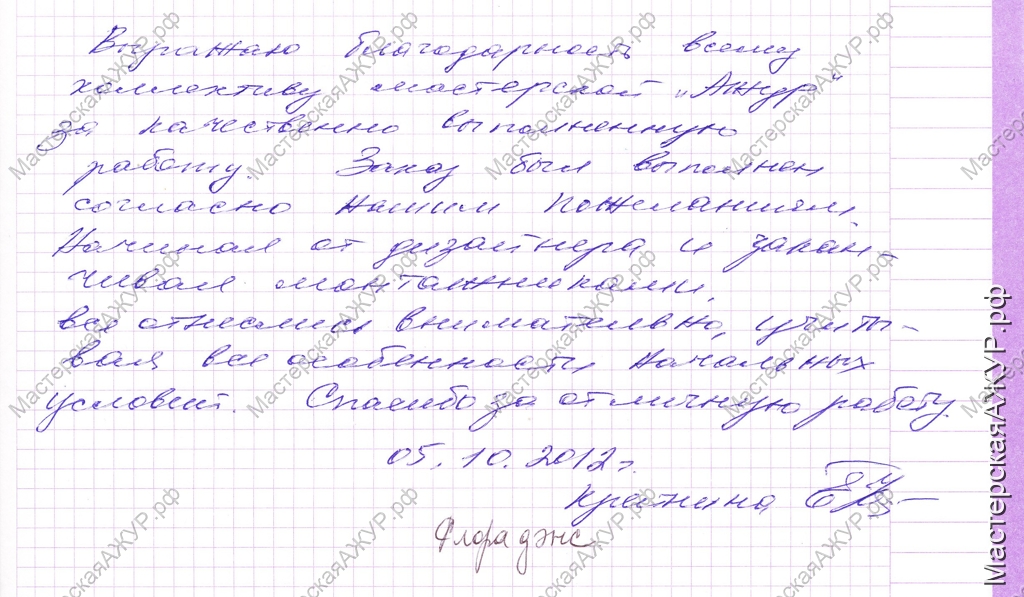 Выражаю благодарность всему
коллективу мастерской „Ажур“
за качественно выполненную
работу. Заказ был выполнен
согласно нашим пожеланиям.
Начиная от дизайнера и закан-
чивая монтажниками,
все отнеслись внимательно, учиты-
вая все особенности начальных
условий. Спасибо за отличную работу.
05.10.2012г.
Флора дэнс
МастерскаяАЖУР.рф